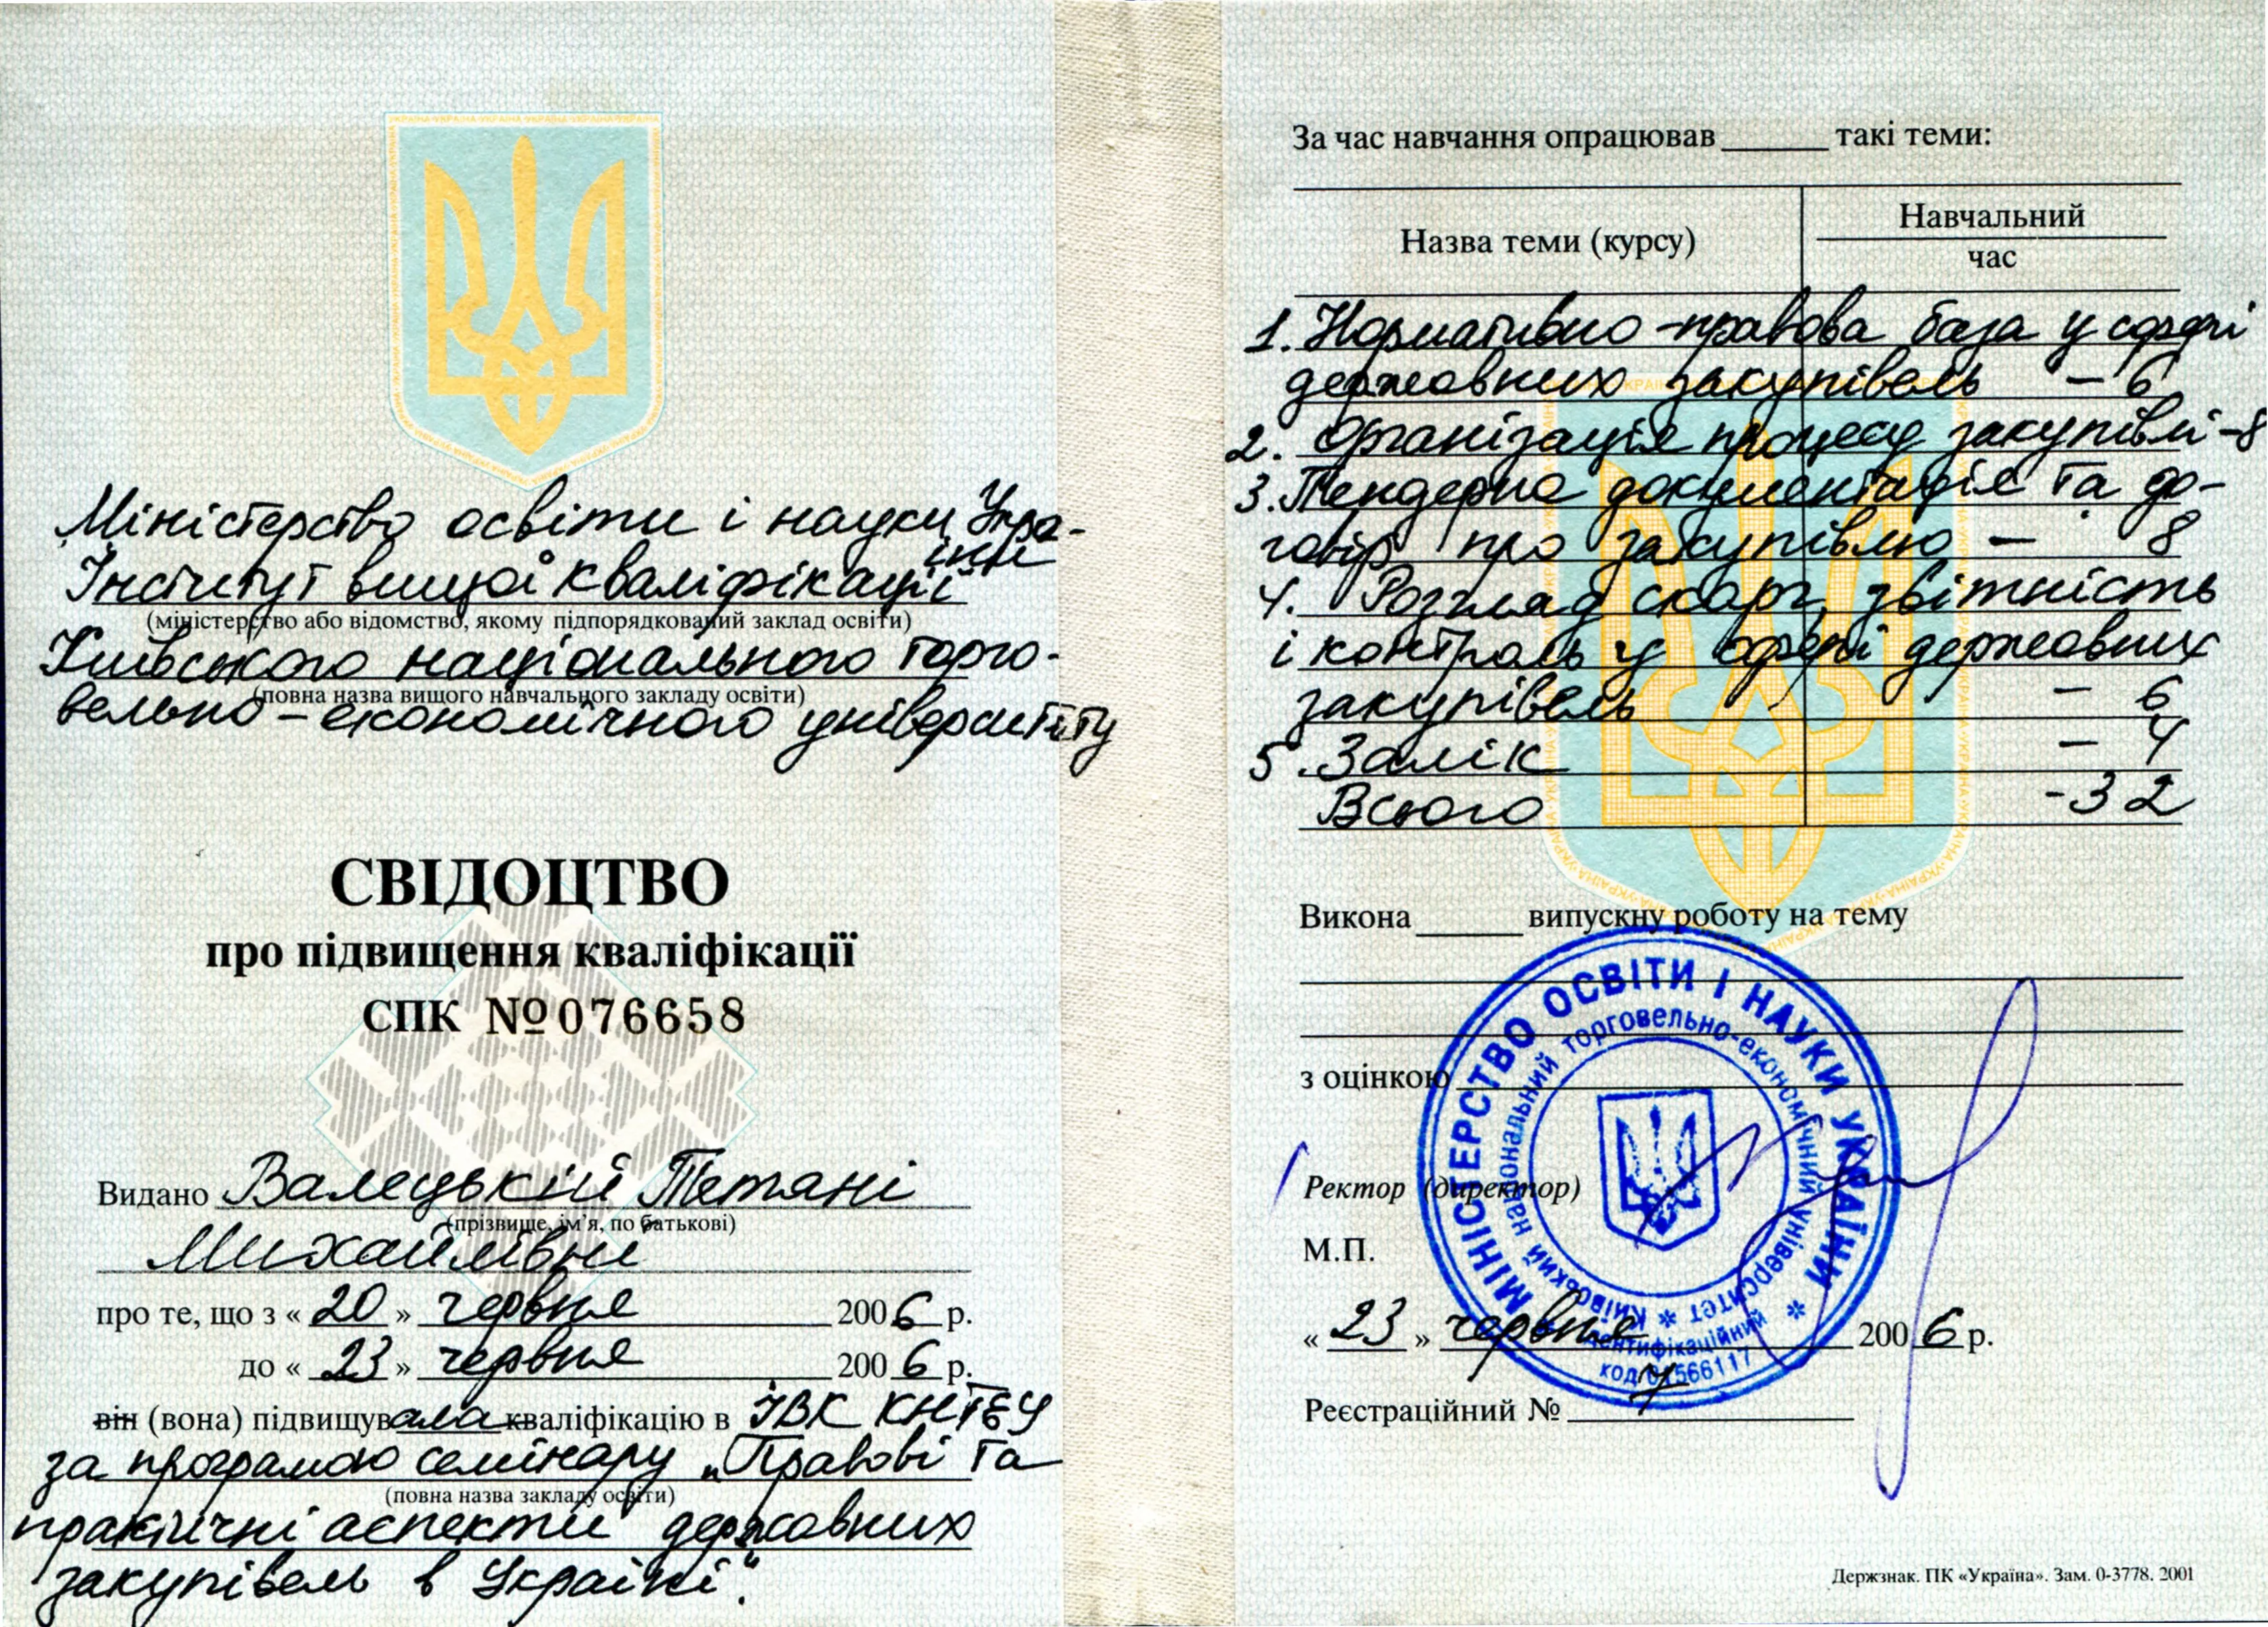 Міністерство освіти і науки Укра-
їни
Інститут вищої кваліфікації
(міністерство або відомство, якому підпорядкований заклад освіти)
Київського національного торго-
(повна назва вищого навчального закладу освіти)
вельно-економічного університету
СВІДОЦТВО
про підвищення кваліфікації
СПК №076658
Видано Валецькій Тетяні
(прізвище, ім'я, по батькові)
Михайлівні
про те, що з « 20 » червня 2006 р.
до « 23 » червня 2006 р.
він (вона) підвищувала кваліфікацію в ІВК КНТЕУ
за програмою семінару „Правові та
(повна назва закладу освіти)
практичні аспекти державних
закупівель в Україні".
За час навчання опрацював ______ такі теми:
Назва теми (курсу)
Навчальний
час
1. Нормативно-правова база у сфері
державних закупівель – 6
2. Організація процесу закупівлі – 8
3. Тендерна документація та до-
говір про закупівлю – 8
4. Розгляд скарг, звітність
і контроль у сфері державних
закупівель – 6
5. Залік – 4
Всього - 32
Викона ______ випускну роботу на тему
з оцінкою
Ректор (директор)
М.П.
« 23 » червня 2006 р.
Реєстраційний № 7
МІНІСТЕРСТВО ОСВІТИ І НАУКИ УКРАЇНИ *
Київський національний торговельно-економічний університет *
ідентифікаційний
код 01566117
Держзнак. ПК «Україна». Зам. 0-3778. 2001